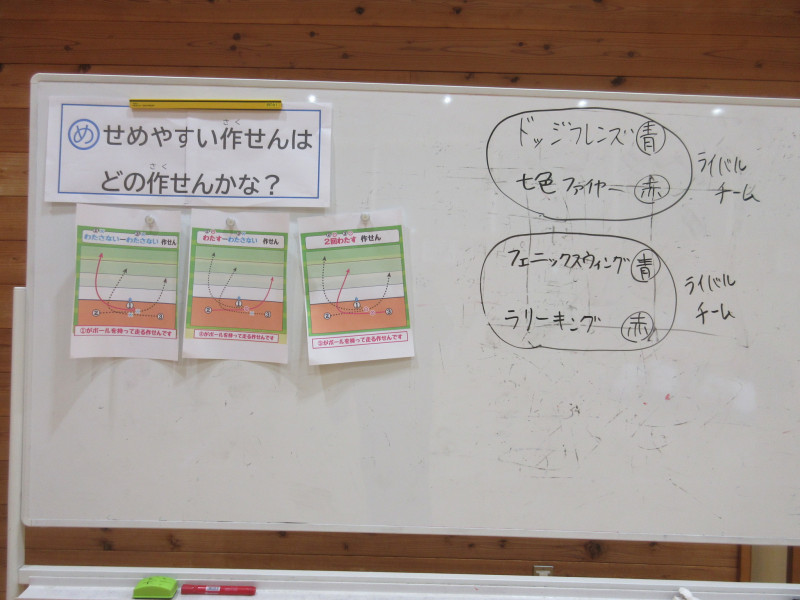 め せめやすい作せんは
さく
どの作せんかな？
さく
わたさないーわたさない 作せん
①がボールを持って走る作せんです
わたすーわたさない 作せん
②がボールを持って走る作せんです
2回わたす 作せん
②がボールを持って走る作せんです
ドッジフレンズ 青
七色ファイヤー 赤
ライバル
チーム
フェニックスウィング 青
ラリーキング 赤
ライバル
チーム